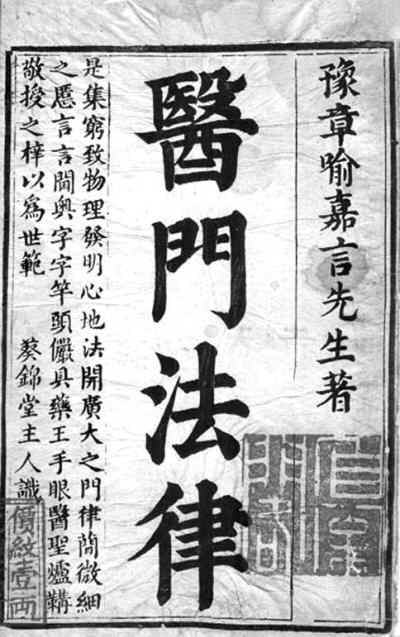 豫章喻嘉言先生著
醫門法律
是集窮致物理發明心地法開廣大之門律簡微細
之愿言言闡輿字字竿頭儼具藥王手眼醫聖爐鞲
敬授之梓以爲世範 葵錦堂主人識
價紋壹両